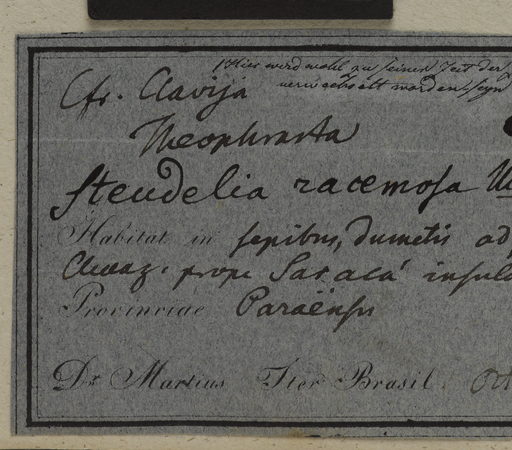 Hier wird wohl zu seiner Zeit der
verwechselt worden seyn
Cfr. Clavija
Theophrasta
Steudelia racemosa
Habitat in sepibus, dumetis ad
prope Saracá insula
Provinciae Paraënsis
Dr. Martius Iter Brasil.